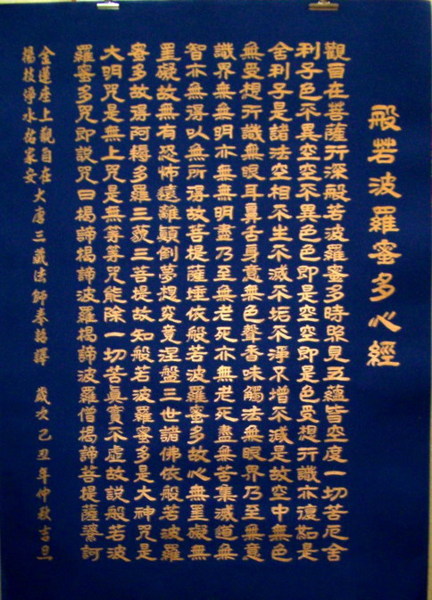 般若波羅蜜多心經
觀自在菩薩行深般若波羅蜜多時照見五蘊皆空度一切苦厄舍
利子色不異空空不異色色即是空空即是色受想行識亦復如是
舍利子是諸法空相不生不滅不垢不淨不增不減是故空中無色
無受想行識無眼耳鼻舌身意無色聲香味觸法無眼界乃至無意
識界無無明亦無無明盡乃至無老死亦無老死盡無苦集滅道無
智亦無得以無所得故菩提薩埵依般若波羅蜜多故心無罣礙無
罣礙故無有恐怖遠離顛倒夢想究竟涅盤三世諸佛依般若波羅
蜜多故得阿耨多羅三藐三菩提故知般若波羅蜜多是大神咒是
大明咒是無上咒是無等等咒能除一切苦真實不虛故說般若波
羅蜜多咒即說咒曰揭諦揭諦波羅揭諦波羅僧揭諦菩提薩婆訶
金蓮座上觀自在
楊枝淨水佑家安
大唐三藏法師奉詔譯 歲次己丑年仲秋吉旦